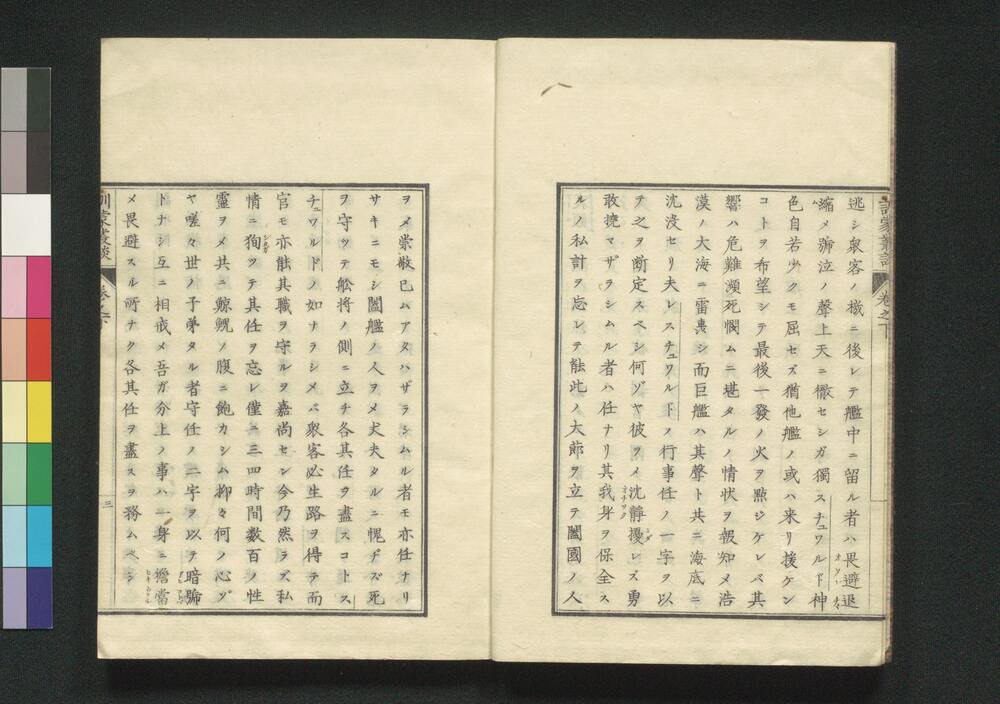 逃シ衆客ノ機ニ後レテ艦中ニ留ル者ハ畏避退
縮メ號泣ノ聲上天ニ徹セシガ獨スチュワルド神
色自若少クモ屈セズ猶他艦ノ或ハ来リ援ケン
コトヲ希望シテ最後一發ノ火ヲ點ジケレバ其
響ハ危難瀕死憫ムニ堪タルノ情状ヲ報知メ浩
漠ノ大海ニ雷轟シ而巨艦ハ其聲ト共ニ海底ニ
沈没セリ夫レスチュワルドノ行事任ノ一字ヲ以
テ之ヲ断定スベシ何ゾヤ彼ヲメ沈靜擾レズ勇
敢撓マザラシムル者ハ任ナリ其我身ヲ保全ス
ルノ私計ヲ忘レテ能此ノ大節ヲ立テ闔國ノ人
ヲメ崇敬已ムアタハザラシムル者モ亦任ナリ
サキニモシ闔艦ノ人ヲメ犬夫タルニ愧ヂズ死
ヲ守ツテ舩将ノ側ニ立チ各其任ヲ盡スコトス
チュワルドノ如ナラシメバ衆客必生路ヲ得テ而
官モ亦能其職ヲ守ルヲ嘉尚セン今乃然ラズ私
情ニ狥ツテ其任ヲ忘レ僅ニ三四時間数百ノ性
靈ヲメ共ニ鯨鯢ノ腹ニ飽カシム抑々何ノ心ゾ
ヤ嗟々世ノ子弟タル者守任ノ二字ヲ以テ暗號
トナシ互ニ相戒メ吾ガ分上ノ事ハ一身ニ擔當
メ畏避スル所ナク各其任ヲ盡スヲ務ムベシ
訓蒙叢談
卷之下
三